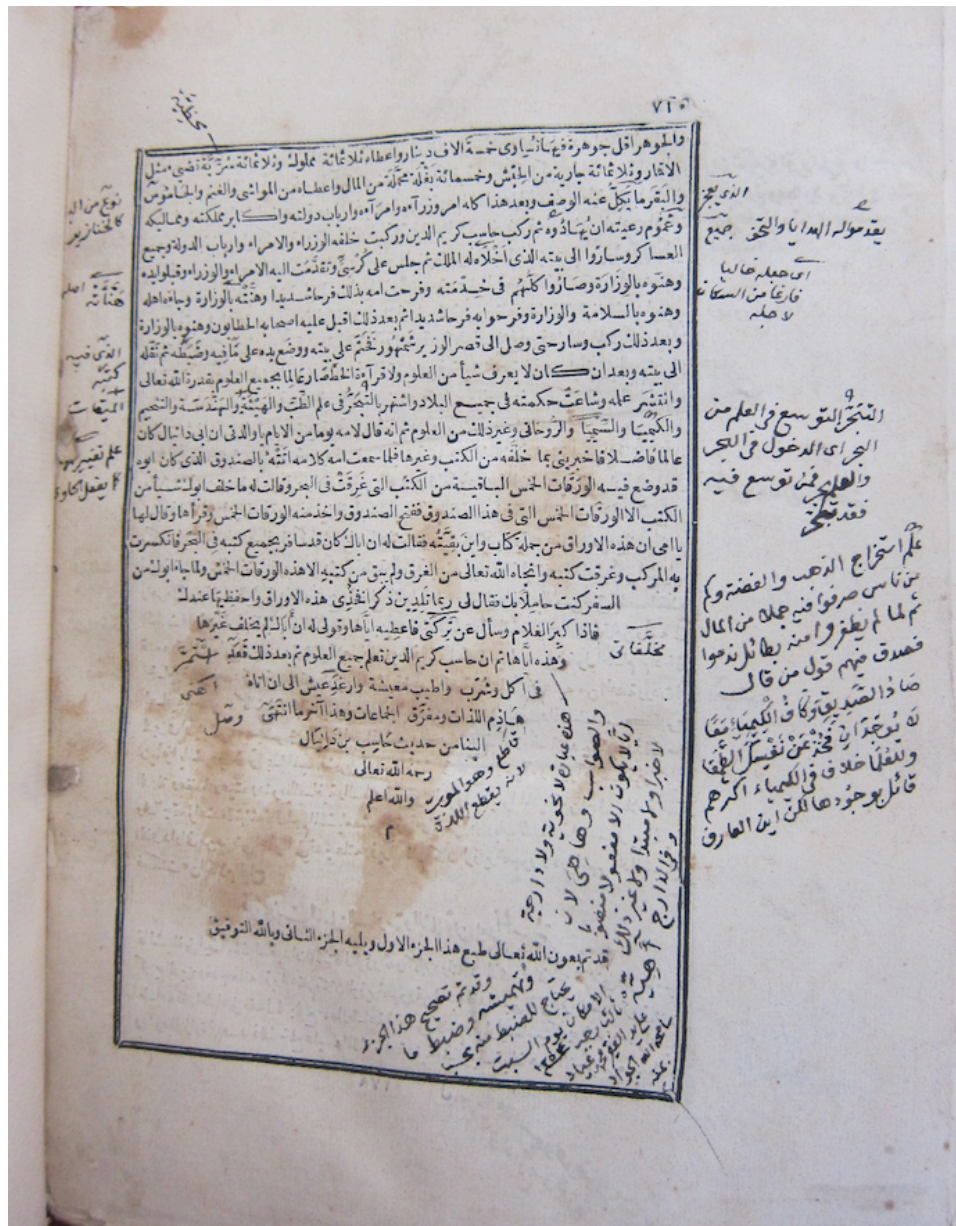 ٧١٠
والجوهر اقل جوهرة فيها تساوى خمسة الاف دينار واعطاه ثلاثمائة مملوك وثلاثمائة سرية تضىء مثل
الاقمار وثلاثمائة جارية من الحبش وخمسمائة بغلة محملة من المال واعطاه من المواشى والغنم والجاموس
والبقر ما يكل عنه الوصف وبعد هذا كله امر وزراءه وامراءه وارباب دولته واكابر مملكته ومماليكه
وعموم رعيته ان يهادوه ثم ركب حاسب كريم الدين وركبت خلفه الوزراء والامراء وارباب الدولة وجميع
العساكر وساروا الى بيته الذى اخلاه له الملك ثم جلس على كرسى وتقدمت اليه الامراء والوزراء وقبلوا يده
وهنوه بالوزارة وصاروا كلهم فى خدمته وفرحت امه بذلك فرحا شديدا وهنته بالوزارة وجاءه اهله
وهنوه بالسلامة والوزارة وفرحوا به فرحا شديدا ثم بعد ذلك اقبل عليه اصحابه الحطابون وهنوه بالوزارة
وبعد ذلك ركب وسار حتى وصل الى قصر الوزير شمهور فختم على بيته ووضع يده على ما فيه وضبطه ثم نقله
الى بيته وبعد ان كان لا يعرف شيأ من العلوم ولا قراءة الخط صار عالما بجميع العلوم بقدرة الله تعالى
وانتشر علمه وشاعت حكمته فى جميع البلاد واشتهر بالتبحر فى علم الطب والهيئة والهندسة والتنجيم
والكيميا والسيميا والروحانى وغير ذلك من العلوم ثم انه قال لامه يوما من الايام يا والدتى ان ابى دانيال كان
عالما فاضلا فاخبرينى بما خلفه من الكتب وغيرها فلما سمعت امه كلامه اتته بالصندوق الذى كان ابوه
قد وضع فيه الورقات الخمس الباقية من الكتب التى غرقت فى البحر وقالت له ما خلف ابوك شيأ من
الكتب الا الورقات الخمس التى فى هذا الصندوق ففتح الصندوق واخذ منه الورقات الخمس وقرأها وقال لها
يا امى ان هذه الاوراق من جملة كتاب واين بقيته فقالت له ان اباك كان قد سافر بجميع كتبه فى البحر فانكسرت
به المركب وغرقت كتبه وانجاه الله تعالى من الغرق ولم يبق من كتبه الا هذه الورقات الخمس ولما جاء ابوك من
السفر كنت حاملا بك فقال لى ربما تلدين ذكرا فخذى هذه الاوراق واحفظيها عندك
فاذا كبر الغلام وسأل عن تركتى فاعطيه اياها وقولى له ان اباك لم يخلف غيرها
وهذه اياها ثم ان حاسب كريم الدين تعلم جميع العلوم ثم بعد ذلك قعد
فى اكل وشرب واطيب معيشة وارغد عيش الى ان اتاه
هاذم اللذات ومفرق الجماعات وهذا آخر ما انتهى
الينا من حديث حاسب بن دانيال
رحمه الله تعالى
والله اعلم
م
استمر
وصل
قاطع وهو الموت
لانه يقطع اللذة
مخلفاتى
قد تم بعون الله تعالى طبع هذا الجزء الاول ويليه الجزء الثانى وبالله التوفيق
وقد تم تصحيح هذا الجزء
وتهميشه وضبط ما
يحتاج للضبط منه
يوم السبت
هذه عبارة لا نحوية ولا دارجية
والصواب وها هى لان
ايا لا يكون الا مفعولا منصوبا
لا خبرا ولا مبتدا ولا غير ذلك
وفى الدارج
الذى يعجز
يقدموا له الهدايا والتحف
جميع
اى جعله خاليا
فارغا من السكان
لاجله
التبحر التوسع فى العلم من
البحر اى الدخول فى البحر
والعلم فمن توسع فيه
فقد تبحر
علم استخراج الذهب والفضة وكم
من ناس صرفوا فيه جملا من المال
ثم لما لم يظفروا منه بطائل ندموا
فصدق فيهم قول من قال
صاد الصديق وكاف الكيمياء معا
لا يوجدان فخذ عن نفسك الطمعا
وللعلما خلاف فى الكيمياء اكثرهم
قائل بوجودها لكن اين العارف
نوع من
هنأته اصله
الذى فيه
كتبه
الميقات
علم تغيير